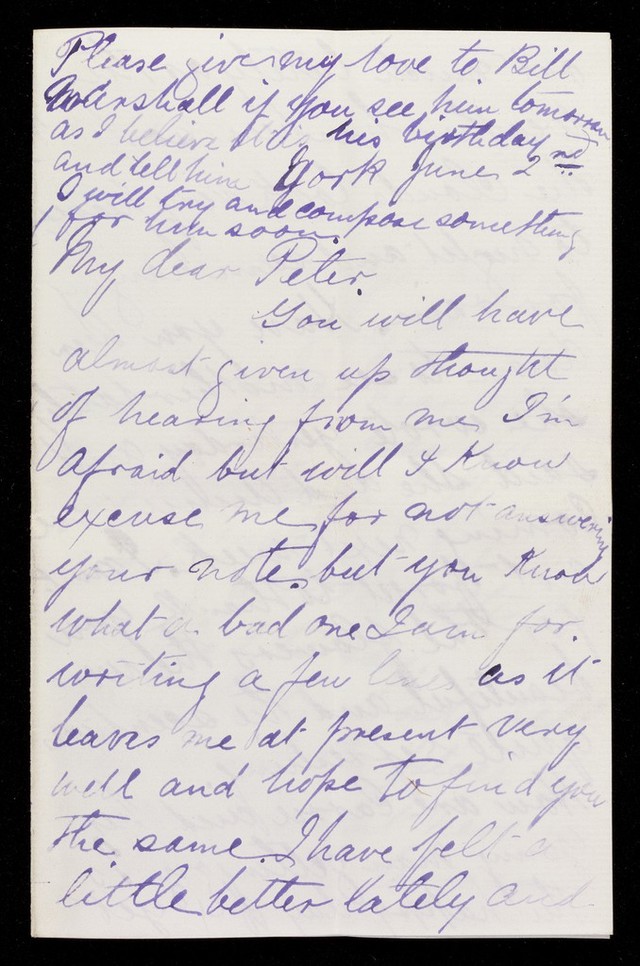 Please give my love to Bill
Marshall if you see him tomorrow
as I believe it is his birthday
and tell him York June 2nd
I will try and compose something
for him soon.
My dear Peter
You will have
almost given up thought
of hearing from me I'm
afraid but will I know
excuse me for not answering
your note, but you know
what a bad one I am for
writing a few lines as it
leaves me at present very
well and hope to find you
the same. I have felt a
little better lately and